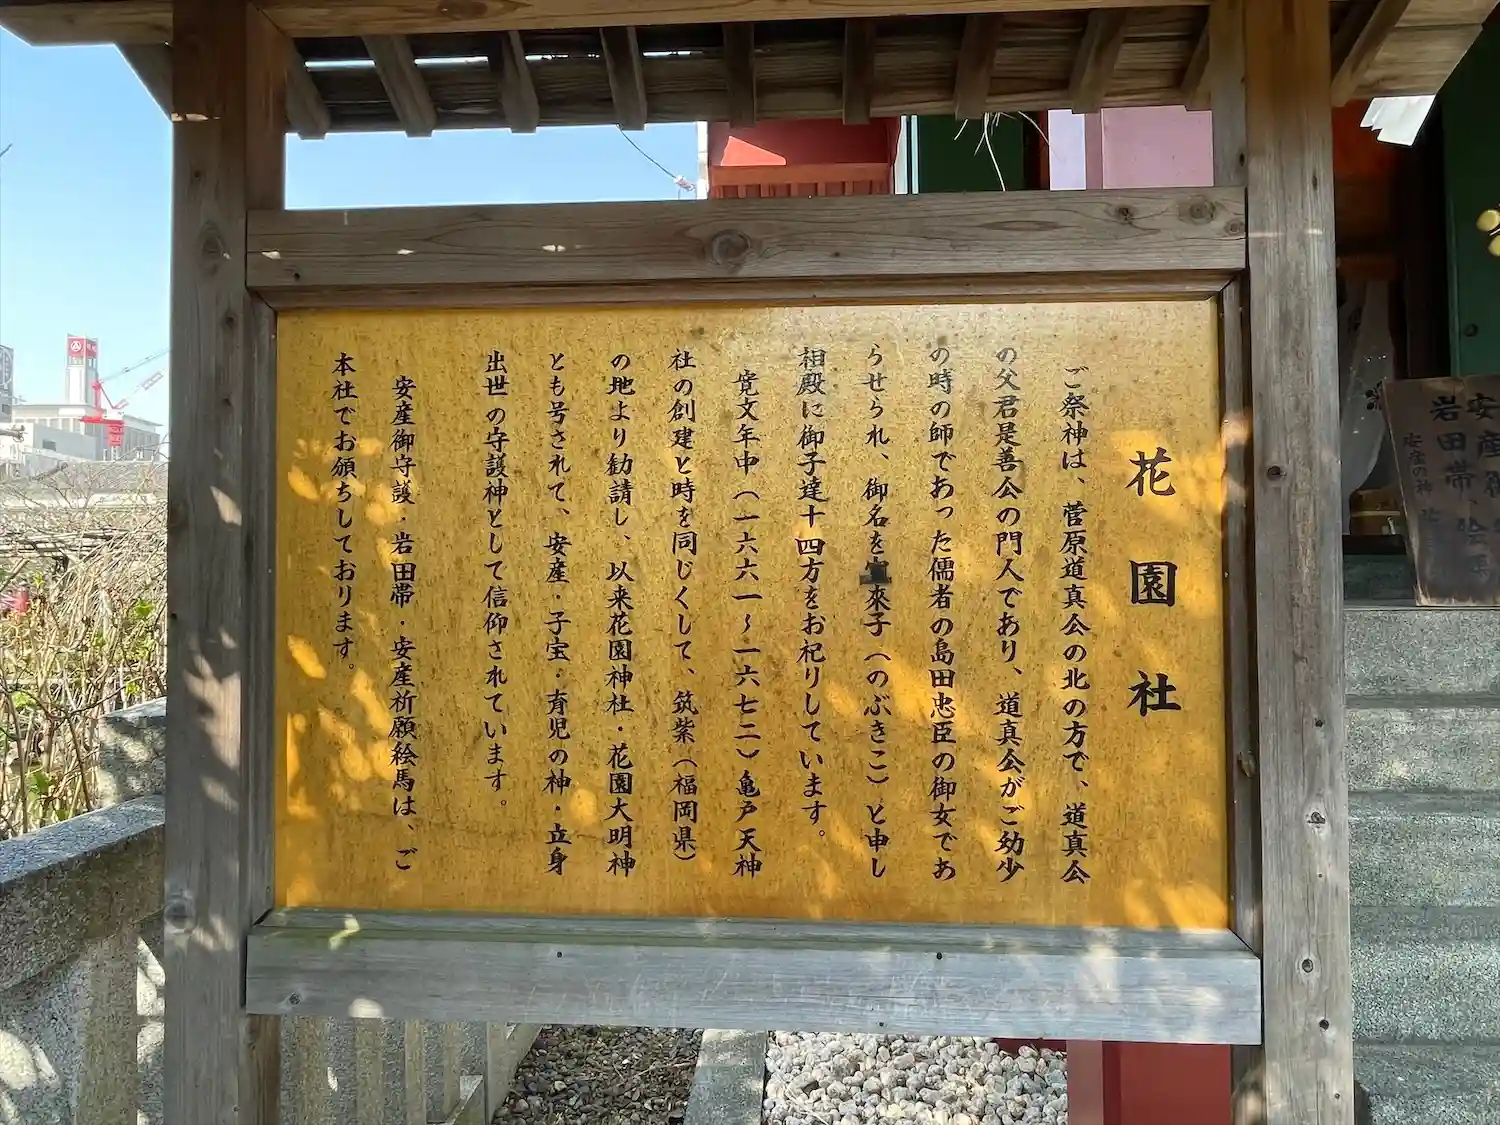 花園社
ご祭神は、菅原道真公の北の方で、道真公
の父君是善公の門人であり、道真公がご幼少
の時の師であった儒者の島田忠臣の御女であ
らせられ、御名を宣來子(のぶきこ)と申し
相殿に御子達十四方をお祀りしています。
寛文年中(一六六一〜一六七二)亀戸天神
社の創建と時を同じくして、筑紫(福岡県)
の地より勧請し、以来花園神社・花園大明神
とも号されて、安産・子宝・育児の神・立身
出世の守護神として信仰されています。
安産御守護・岩田帯・安産祈願絵馬は、ご
本社でお頒ちしております。
安産御
岩田帯、絵馬
安産の神